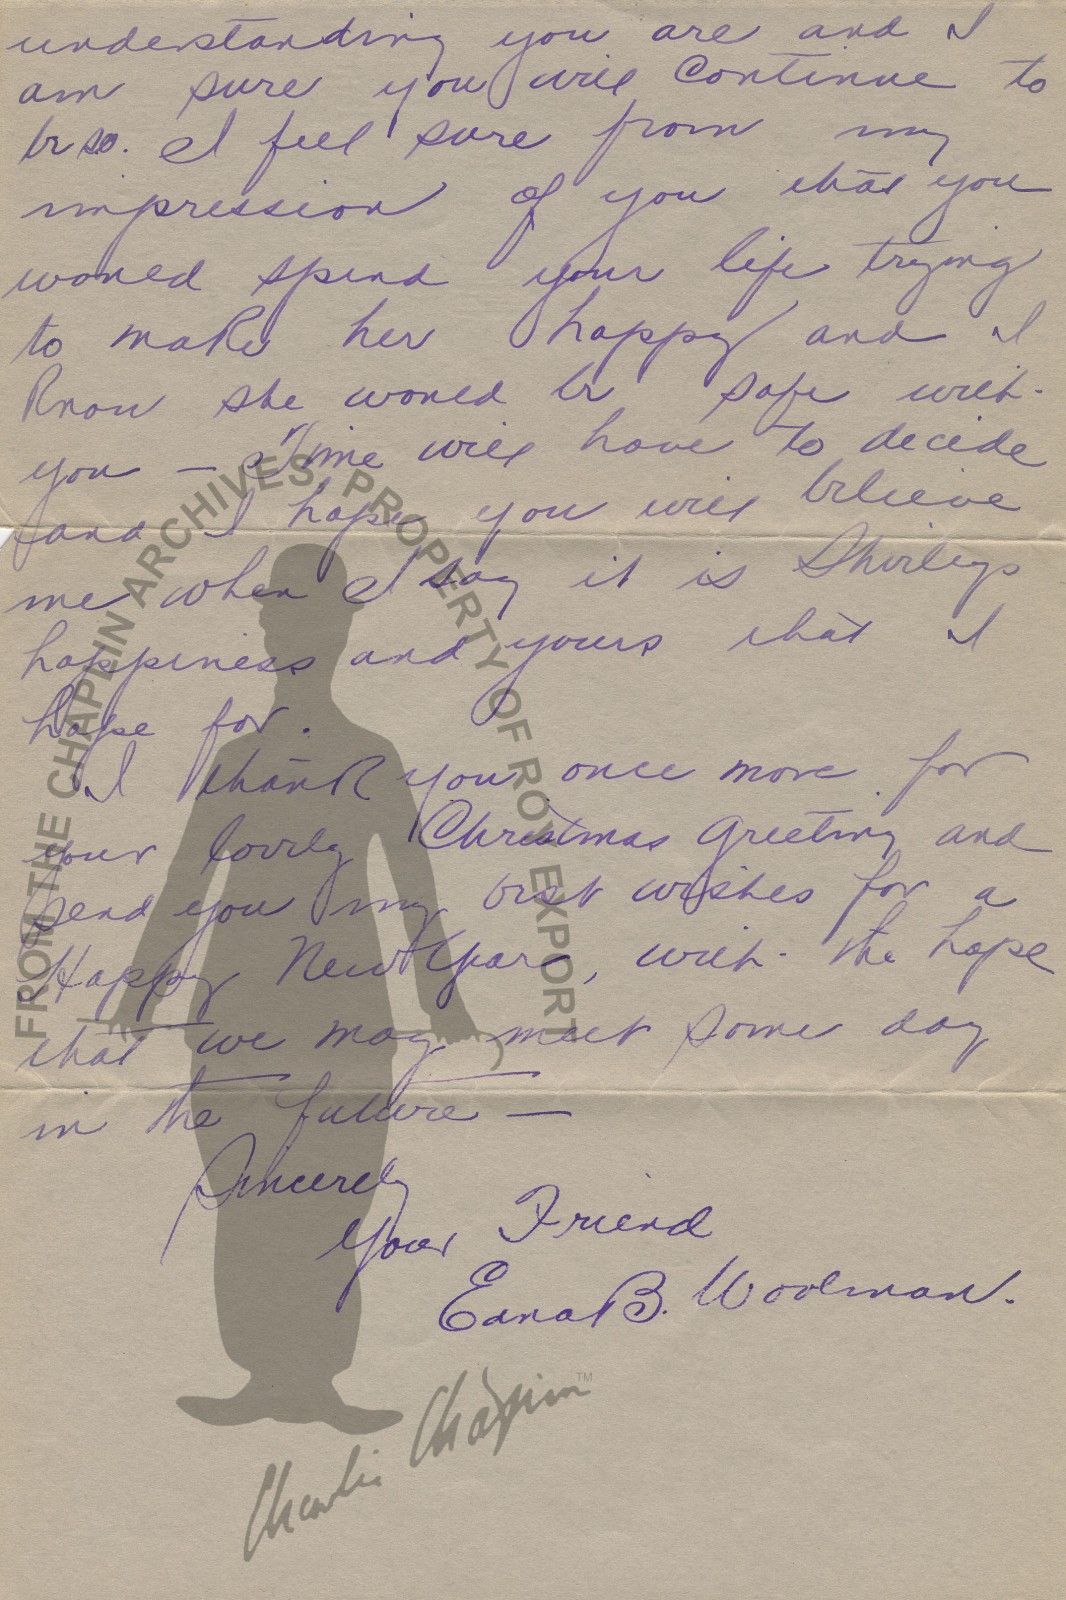 understanding you are and I
am sure you will Continue to
be so. I feel sure from my
impression of you that you
would spend your life trying
to make her happy and I
know she would be safe with
you — Time will have to decide
and I hope you will believe
me when I say it is Shirleys
happiness and yours that I
hope for.
I thank you once more for
your lovely Christmas greeting and
send you my best wishes for a
Happy New Year, with the hope
that we may meet some day
in the future —
Sincerely
Your Friend
Edna B. Woolman.
FROM THE CHAPLIN ARCHIVES, PROPERTY OF ROY EXPORT
Charlie Chaplin™